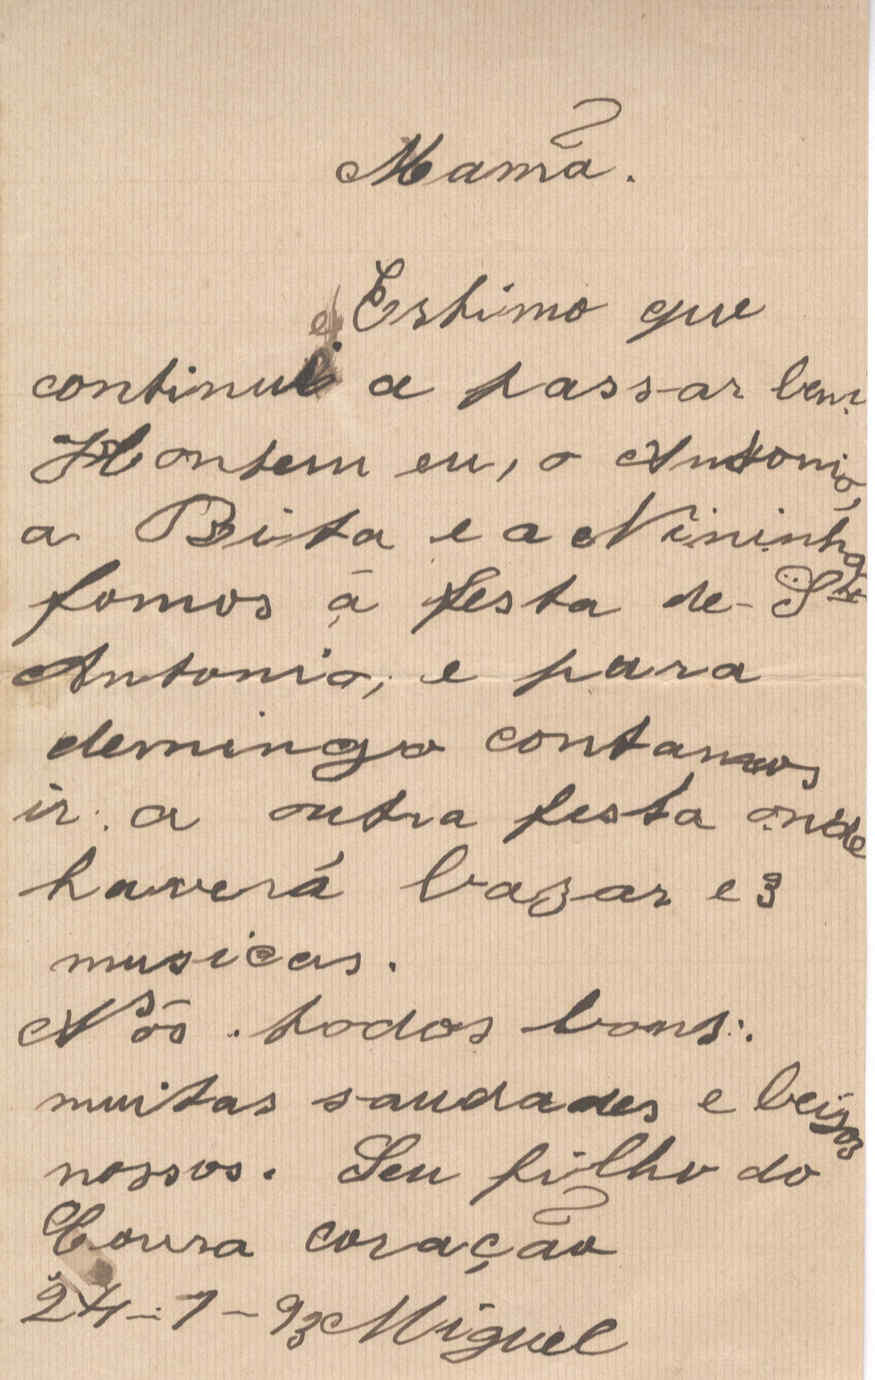 Mamã.
Estimo que
continue a passar bem.
Hontem eu, o Antonio,
a Bita e a Nininha
fomos á festa de Sto
Antonio, e para
demingo contamos
ir a outra festa onde
haverá bazar e 3
musicas.
Nós todos bons.
muitas saudades e beijos
nossos. Seu filho do
Coura coração
24-7-93 Miguel